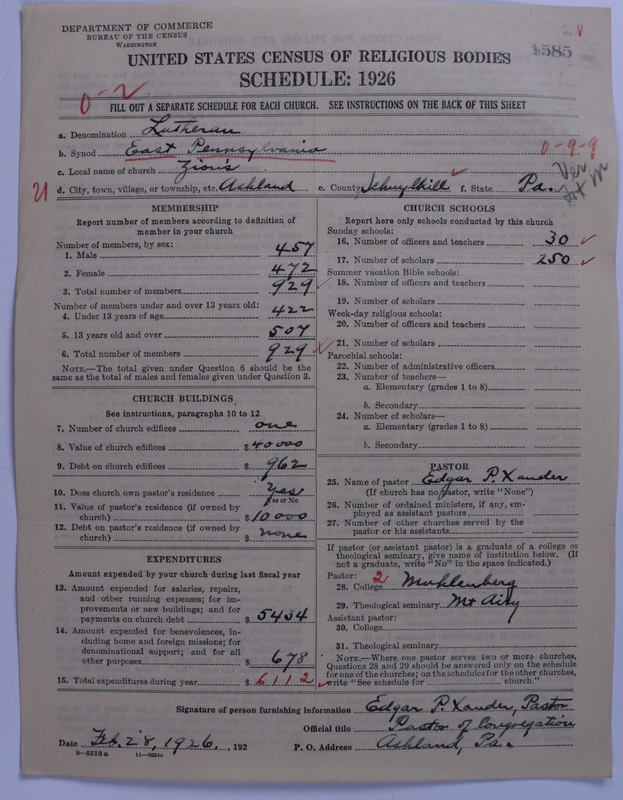 DEPARTMENT OF COMMERCE
BUREAU OF THE CENSUS
WASHINGTON
1585
UNITED STATES CENSUS OF RELIGIOUS BODIES
SCHEDULE: 1926
0-2
FILL OUT A SEPARATE SCHEDULE FOR EACH CHURCH. SEE INSTRUCTIONS ON THE BACK OF THIS SHEET
a. Denomination Lutheran
b. Synod East Pennsylvania 0-9-9
c. Local name of church Zion's Ver
21 d. City, town, village, or township, etc. Ashland e. County Schuylkill f. State Pa.
MEMBERSHIP
Report number of members according to definition of
member in your church
Number of members, by sex:
1. Male 457
2. Female 472
3. Total number of members 929
Number of members under and over 13 years old:
4. Under 13 years of age 422
5. 13 years old and over 507
6. Total number of members 929
NOTE.—The total given under Question 6 should be the
same as the total of males and females given under Question 3.
CHURCH BUILDINGS
See instructions, paragraphs 10 to 12
7. Number of church edifices one
8. Value of church edifices $ 40000
9. Debt on church edifices $ 962
10. Does church own pastor's residence Yes
Yes or No
11. Value of pastor's residence (if owned by
church) $ 10000
12. Debt on pastor's residence (if owned by
church) $ none
EXPENDITURES
Amount expended by your church during last fiscal year
13. Amount expended for salaries, repairs,
and other running expenses; for im-
provements or new buildings; and for
payments on church debt $ 5434
14. Amount expended for benevolences, in-
cluding home and foreign missions; for
denominational support; and for all
other purposes $ 678
15. Total expenditures during year $ 6112
CHURCH SCHOOLS
Report here only schools conducted by this church
Sunday schools:
16. Number of officers and teachers 30
17. Number of scholars 250
Summer vacation Bible schools:
18. Number of officers and teachers
19. Number of scholars
Week-day religious schools:
20. Number of officers and teachers
21. Number of scholars
Parochial schools:
22. Number of administrative officers
23. Number of teachers—
a. Elementary (grades 1 to 8)
b. Secondary
24. Number of scholars—
a. Elementary (grades 1 to 8)
b. Secondary
PASTOR
25. Name of pastor Edgar P. Xander
(If church has no pastor, write "None")
26. Number of ordained ministers, if any, em-
ployed as assistant pastors
27. Number of other churches served by the
pastor or his assistants
If pastor (or assistant pastor) is a graduate of a college or
theological seminary, give name of institution below. (If
not a graduate, write "No" in the space indicated.)
Pastor: 2
28. College Muhlenberg
29. Theological seminary Mt Airy
Assistant pastor:
30. College
31. Theological seminary
NOTE.—Where one pastor serves two or more churches,
Questions 28 and 29 should be answered only on the schedule
for one of the churches; on the schedules for the other churches,
write "See schedule for church."
Signature of person furnishing information Edgar P. Xander, Pastor
Official title Pastor of Congregation
Date Feb. 28, 1926. , 192 P. O. Address Ashland, Pa.
8-5518a